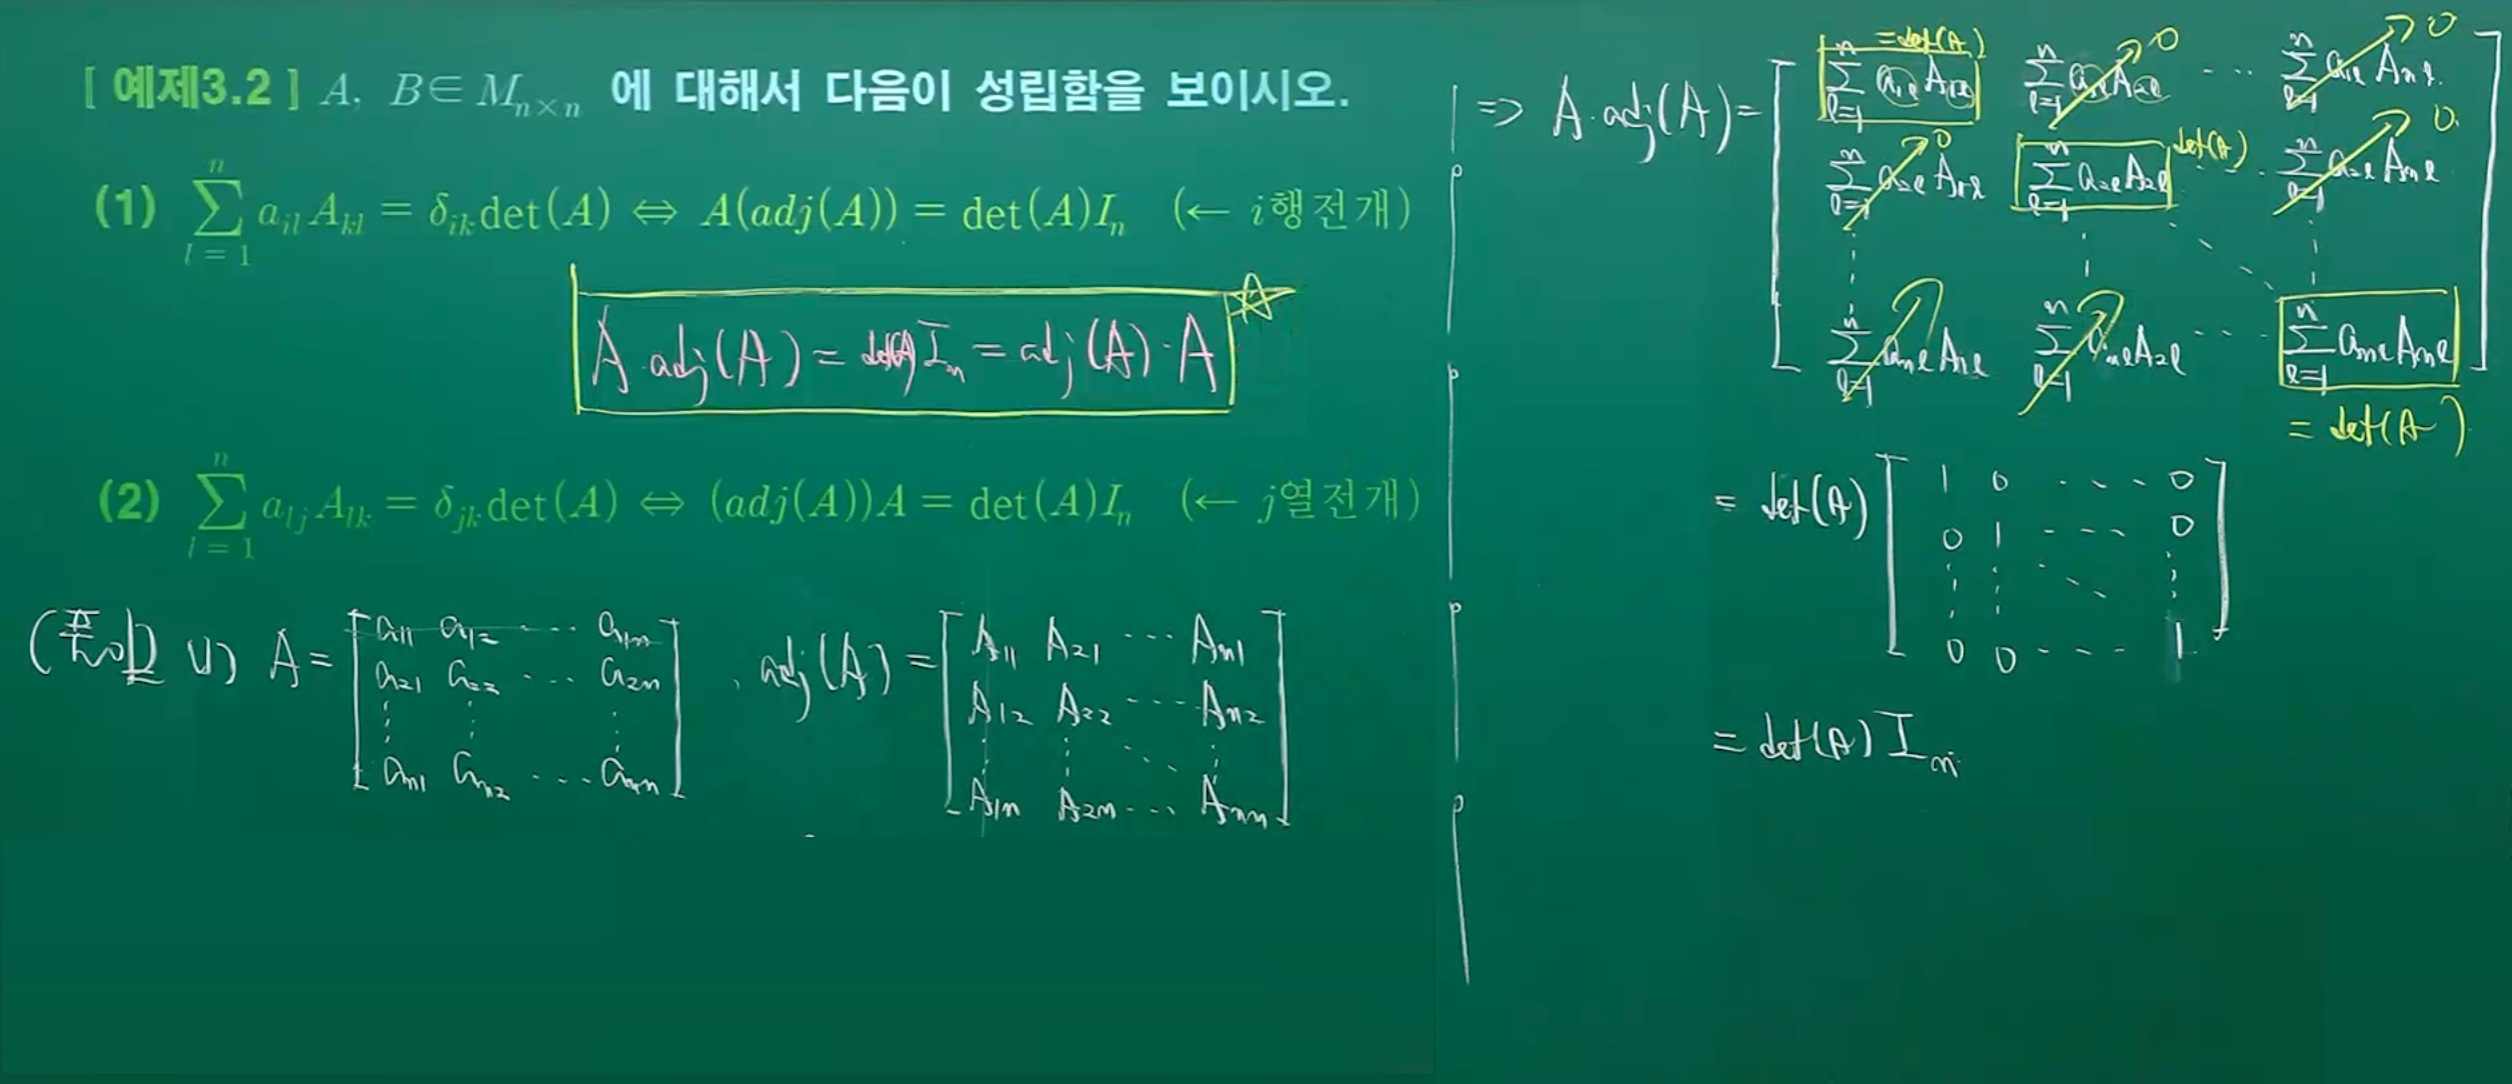 [ 예제3.2 ] A, B∈ M_{n×n} 에 대해서 다음이 성립함을 보이시오.
(1) \sum_{l=1}^{n} a_{il} A_{kl} = δ_{ik} det(A) ⇔ A(adj(A)) = det(A)I_n (← i행전개)
A·adj(A) = det(A) I_n = adj(A)·A ☆
(2) \sum_{l=1}^{n} a_{lj} A_{lk} = δ_{jk} det(A) ⇔ (adj(A))A = det(A)I_n (← j열전개)
(풀이) (1) A = [ a_{11} a_{12} ⋯ a_{1n}
a_{21} a_{22} ⋯ a_{2n}
⋮ ⋮ ⋮
a_{n1} a_{n2} ⋯ a_{nn} ]
, adj(A) = [ A_{11} A_{21} ⋯ A_{n1}
A_{12} A_{22} ⋯ A_{n2}
⋮ ⋮ ⋱ ⋮
A_{1n} A_{2n} ⋯ A_{nn} ]
=det(A) 0 0
⇒ A·adj(A) = [ \sum_{l=1}^{n} a_{1l} A_{1l} \sum_{l=1}^{n} a_{1l} A_{2l} ⋯ \sum_{l=1}^{n} a_{1l} A_{nl}
0 det(A) 0
\sum_{l=1}^{n} a_{2l} A_{1l} \sum_{l=1}^{n} a_{2l} A_{2l} ⋯ \sum_{l=1}^{n} a_{2l} A_{nl}
⋮ ⋮ ⋱ ⋮
\sum_{l=1}^{n} a_{nl} A_{1l} \sum_{l=1}^{n} a_{nl} A_{2l} ⋯ \sum_{l=1}^{n} a_{nl} A_{nl} ]
= det(A)
= det(A) [ 1 0 ⋯ 0
0 1 ⋯ 0
⋮ ⋮ ⋱ ⋮
0 0 ⋯ 1 ]
= det(A) I_n